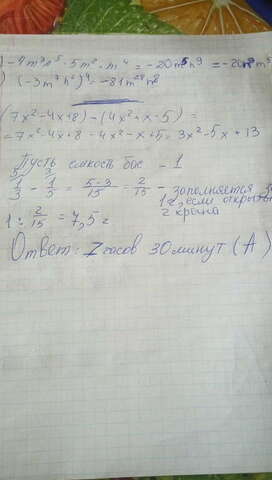 ) -4m³n⁵ · 5m² · m⁴ = -20m⁵n⁹ = -20n⁹m⁵
) (-3m⁷n²)⁴ = -81m²⁸n⁸
(7x²-4x+8) - (4x²+x-5) =
= 7x²-4x+8 - 4x²-x+5 = 3x²-5x+13
Пусть емкость бас - 1
1/3 - 1/3 = 5-3/15 = 2/15 - заполняется
1г, если открыты
2 крана
1 : 2/15 = 7,5 г
Ответ: 7 часов 30 минут (А)